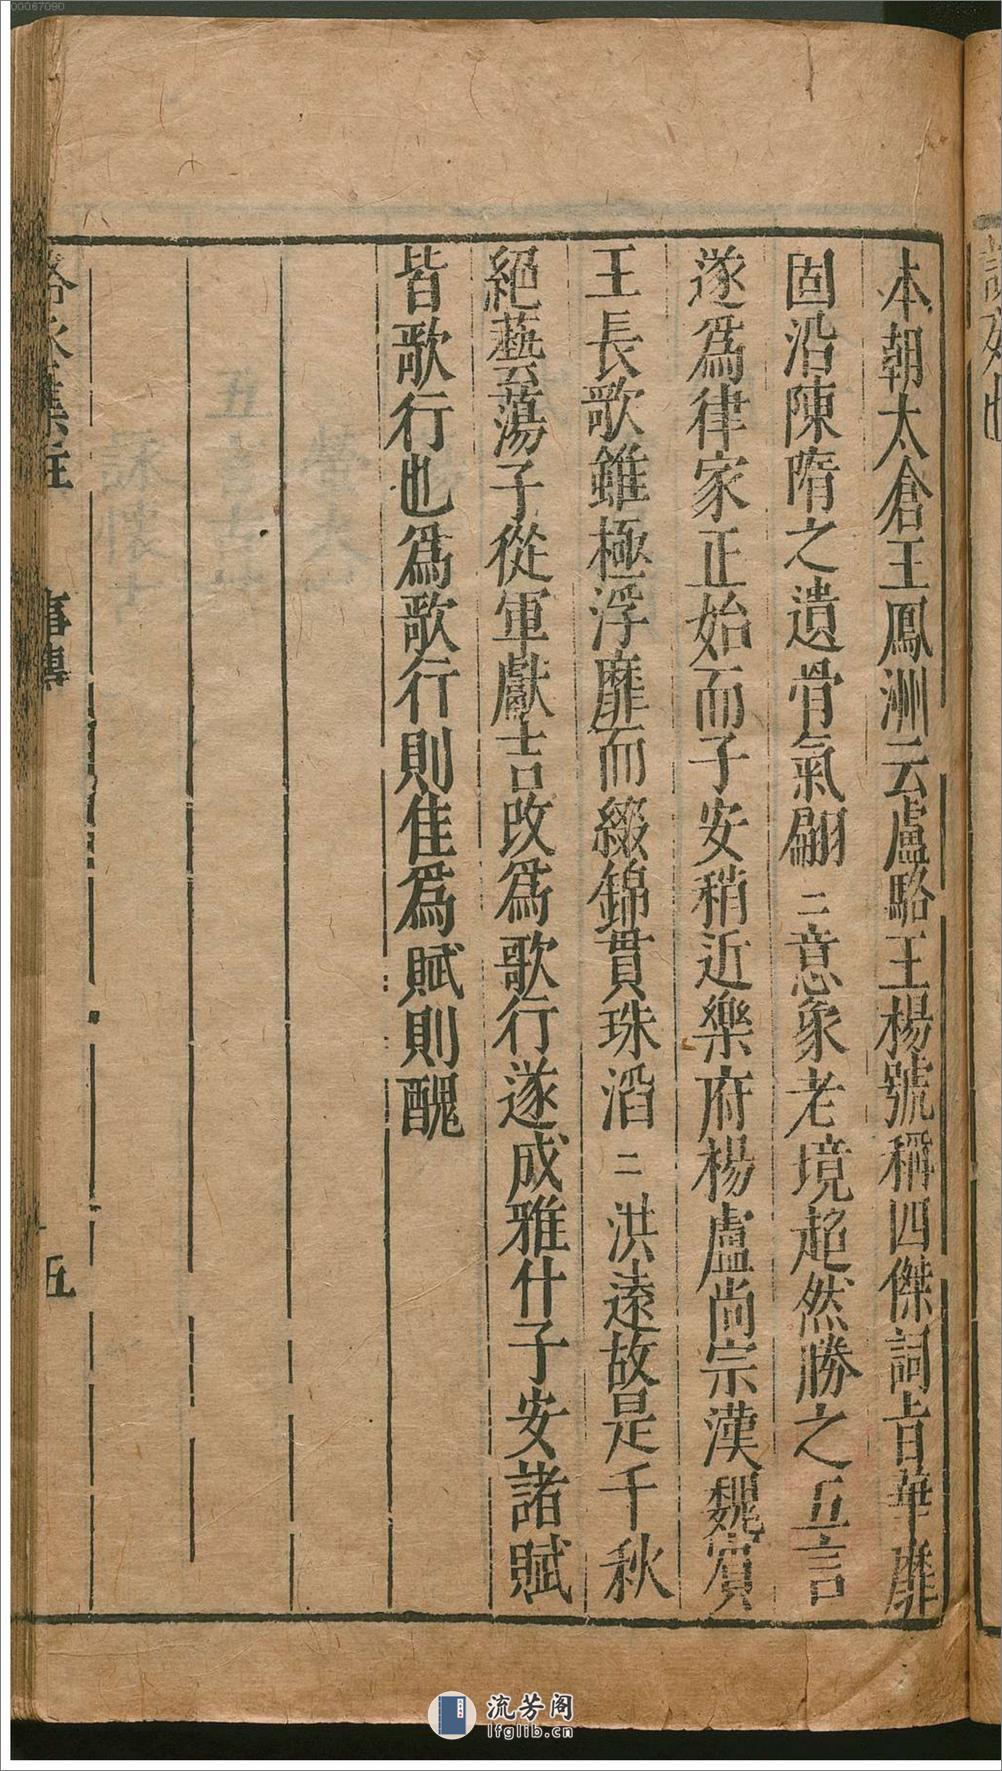 00067090
本朝太倉王鳳洲云盧駱王楊號稱四傑詞旨華靡
固沿陳隋之遺骨氣翩二意象老境超然勝之五言
遂爲律家正始而子安稍近樂府楊盧尚宗漢魏賔
王長歌雖極浮靡而綴錦貫珠滔二洪遠故是千秋
絕藝蕩子從軍獻吉改爲歌行遂成雅什子安諸賦
皆歌行也爲歌行則佳爲賦則醜
事傳
五
流芳阁
lfglib.cn